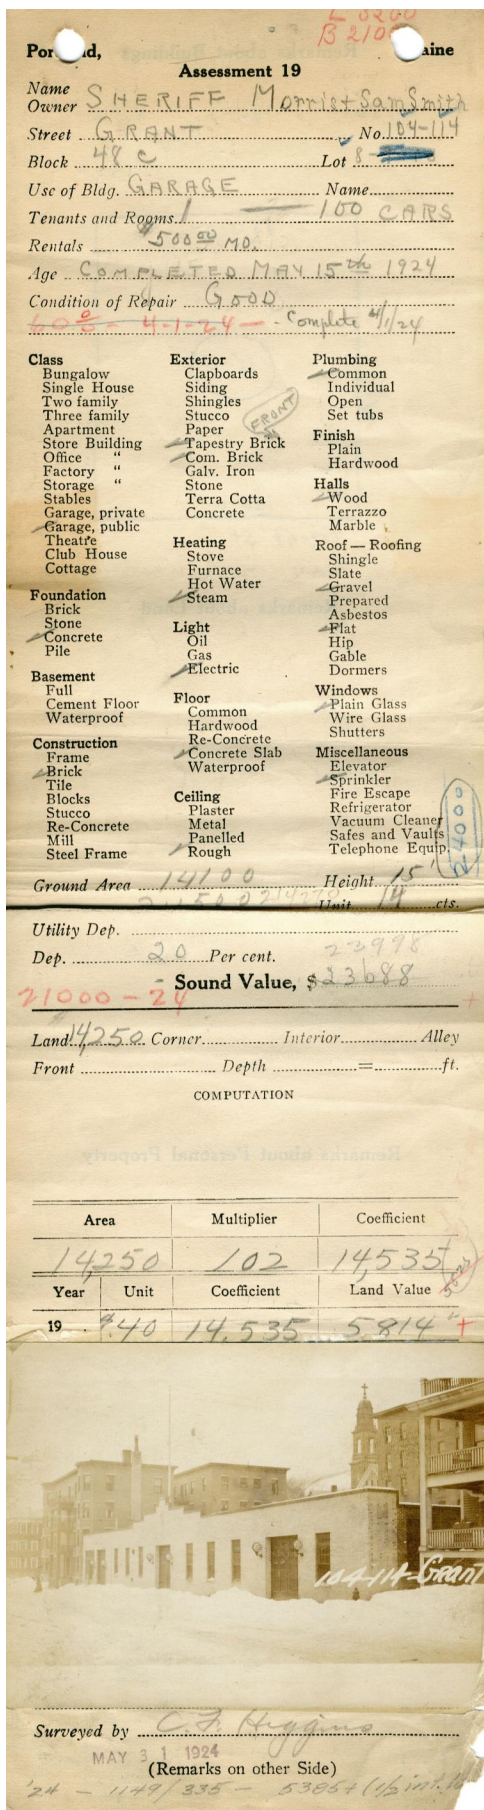 L 6200
B 2100
Portland, Maine
Assessment 19
Name
Owner SHERIFF Morris + Sam Smith
Street GRANT No. 104-114
Block 48 C Lot 8
Use of Bldg. GARAGE Name
Tenants and Rooms 1 — 100 CARS
Rentals $500 00 MO.
Age COMPLETED MAY 15th 1924
Condition of Repair GOOD
60% - 4-1-24 - Complete 4/1/24
Class
Bungalow
Single House
Two family
Three family
Apartment
Store Building
Office "
Factory "
Storage "
Stables
Garage, private
Garage, public
Theatre
Club House
Cottage
Foundation
Brick
Stone
Concrete
Pile
Basement
Full
Cement Floor
Waterproof
Construction
Frame
Brick
Tile
Blocks
Stucco
Re-Concrete
Mill
Steel Frame
Exterior
Clapboards
Siding
Shingles
Stucco
Paper
FRONT
Tapestry Brick
Com. Brick
Galv. Iron
Stone
Terra Cotta
Concrete
Heating
Stove
Furnace
Hot Water
Steam
Light
Oil
Gas
Electric
Floor
Common
Hardwood
Re-Concrete
Concrete Slab
Waterproof
Ceiling
Plaster
Metal
Panelled
Rough
Plumbing
Common
Individual
Open
Set tubs
Finish
Plain
Hardwood
Halls
Wood
Terrazzo
Marble
Roof — Roofing
Shingle
Slate
Gravel
Prepared
Asbestos
Flat
Hip
Gable
Dormers
Windows
Plain Glass
Wire Glass
Shutters
Miscellaneous
Elevator
Sprinkler
Fire Escape
Refrigerator
Vacuum Cleaner
Safes and Vaults
Telephone Equip.
24000
Ground Area 14100 Height 15'
Unit 14 cts.
Utility Dep.
Dep. 20 Per cent. 23998
Sound Value, $23688
21000 - 24
Land 14,250 Corner Interior Alley
Front Depth = ft.
COMPUTATION
Area Multiplier Coefficient
14,250 102 14,535
Year Unit Coefficient Land Value
19 $.40 14,535 5814 +
104-114-Grant
Surveyed by C. F. Higgins
MAY 31 1924
(Remarks on other Side)
'24 - 1149/335 - 5385+ (1/2 int.